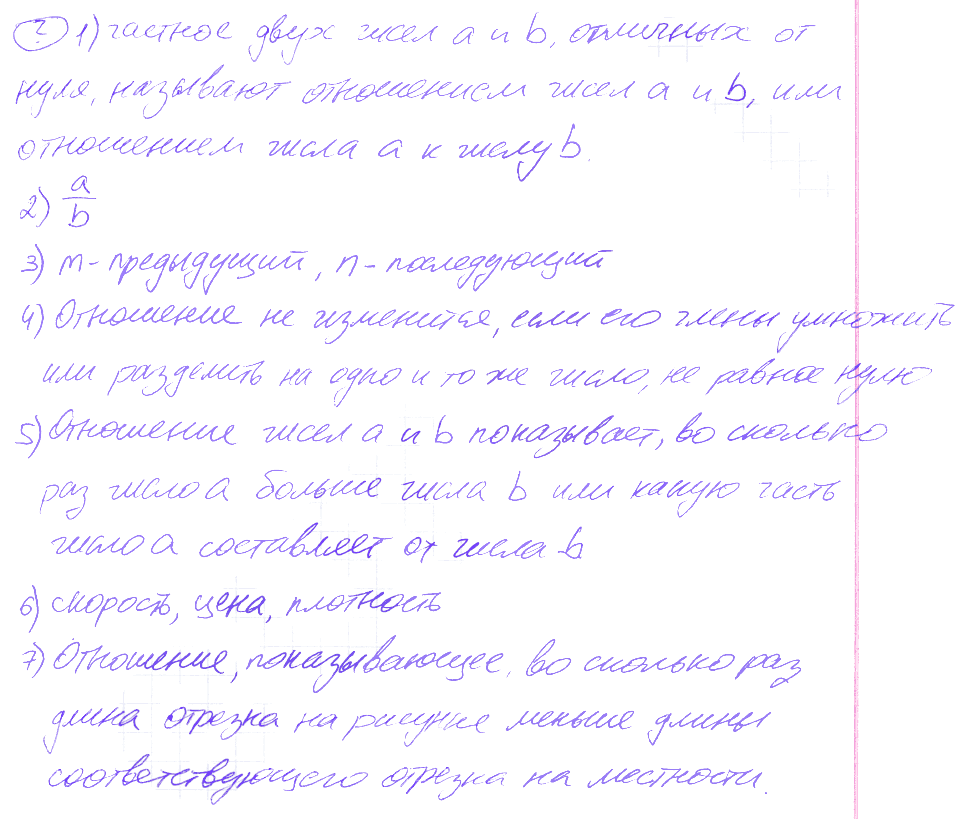 ? 1) частное двух чисел a и b, отличных от
нуля, называют отношением чисел a и b, или
отношением числа a к числу b.
2) a/b
3) m - предыдущий, n - последующий
4) Отношение не изменится, если его члены умножить
или разделить на одно и то же число, не равное нулю
5) Отношение чисел a и b показывает, во сколько
раз число a больше числа b или какую часть
число a составляет от числа b
6) скорость, цена, плотность
7) Отношение, показывающее, во сколько раз
длина отрезка на рисунке меньше длины
соответствующего отрезка на местности.